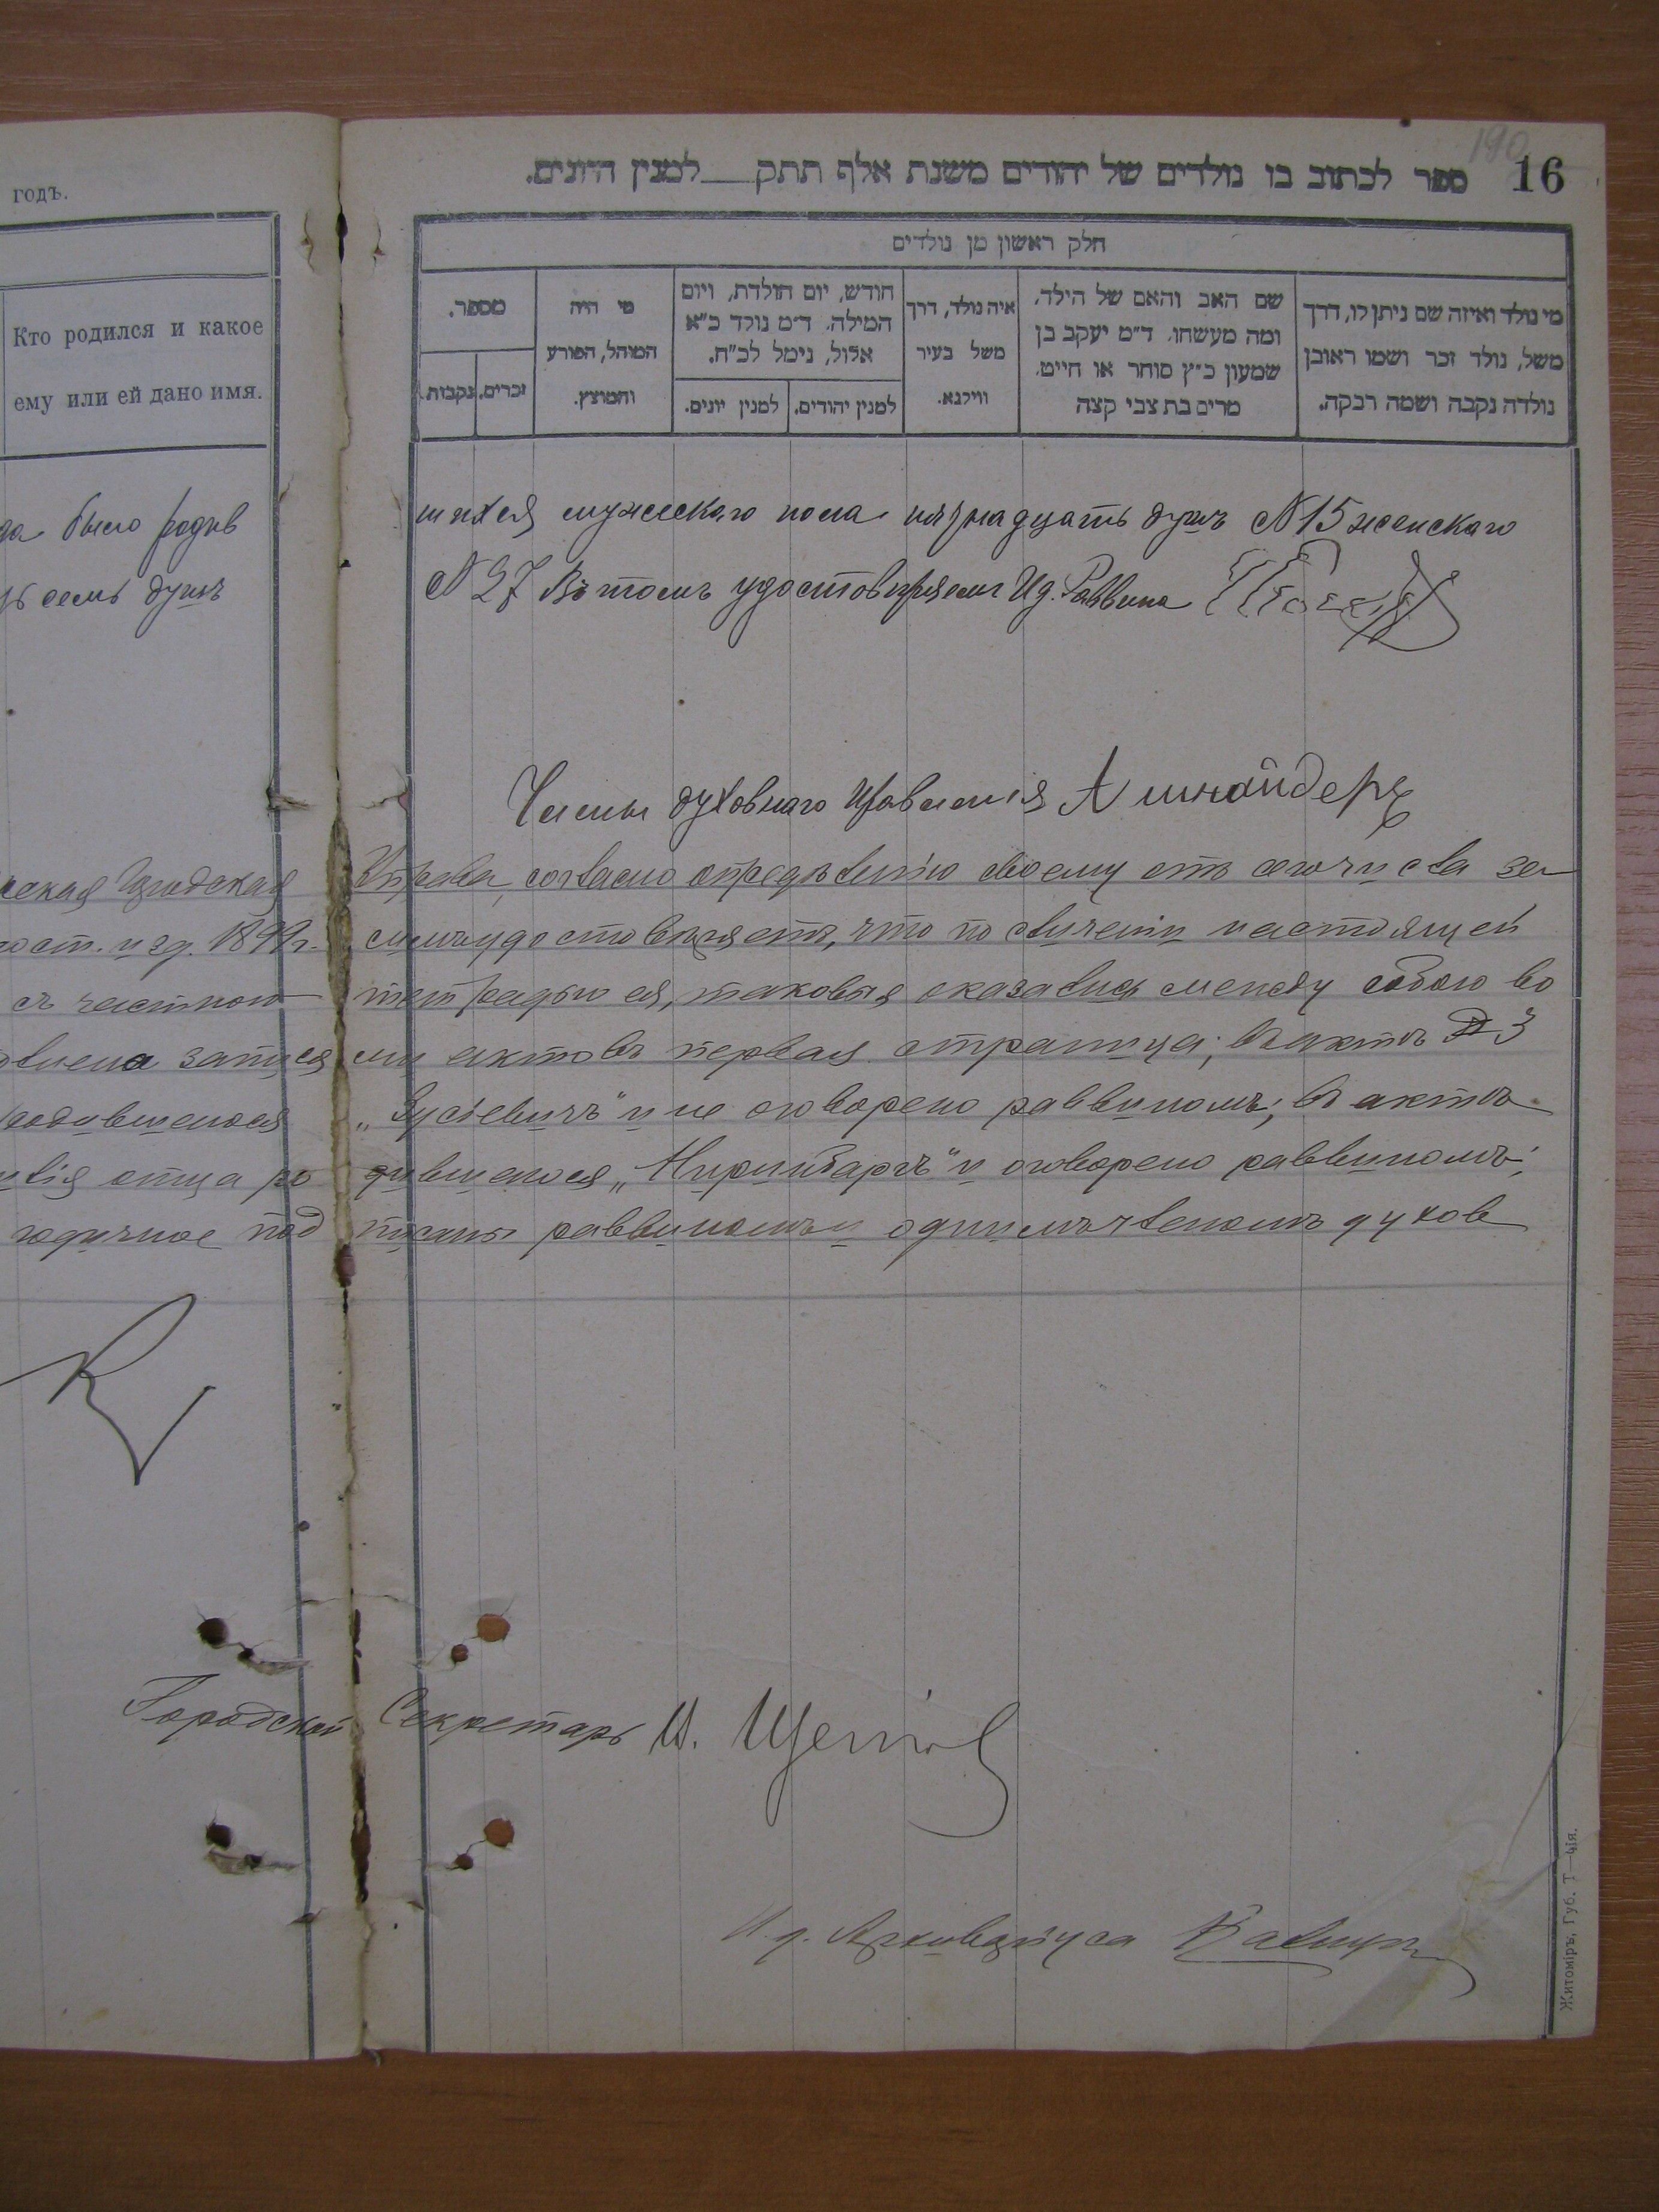 годъ.
Кто родился и какое
ему или ей дано имя.
да было родив
семь душъ
ская Городская
ст. и гд. 1899 г.
съ частною
запися
родившегося
отца ро
годичное под
190
16
ספר לכתוב בו נולדים של יהודים משנת אלף תתק__למנין היונים.
חלק ראשון מן נולדים
מי נולד ואיזה שם ניתן לו, דרך
משל, נולד זכר ושמו ראובן
נולדה נקבה ושמה רבקה.
שם האב והאם של הילד,
ומה מעשהו. ד״מ יעקב בן
שמעון כ״ץ סוחר או חייט.
מרים בת צבי קצה
איה נולד, דרך
משל בעיר
ווילנא.
חודש, יום הולדת, ויום
המילה. ד״מ נולד כ״א
אלול, נימל לכ״ח.
למנין יהודים.
למנין יונים.
מי היה
המוהל, הפורע
והמוצץ.
מספר.
זכרים.
נקבות.
шихся мужескаго пола пятнадцать душъ №15 женскаго
№ 27 Въ томъ удостовѣряемъ Ид. Раввина
Члены духовнаго Правленія А Шнайдеръ
Управа, согласно опредѣленію своему отъ сего числа за
симъ удостовѣряетъ, что по сличеніи настоящей
тетрадью ея, таковыя оказались между собою во
ми актовъ первая страница; въ актѣ № 3
„Зусіевичъ" и не оговорено раввиномъ; въ актѣ
дившагося и оговорено раввиномъ;
писаны раввиномъ и однимъ членомъ духов
Городской Секретарь И.
И. д. Архиваріуса
Житоміръ, Губ. Т—чія.